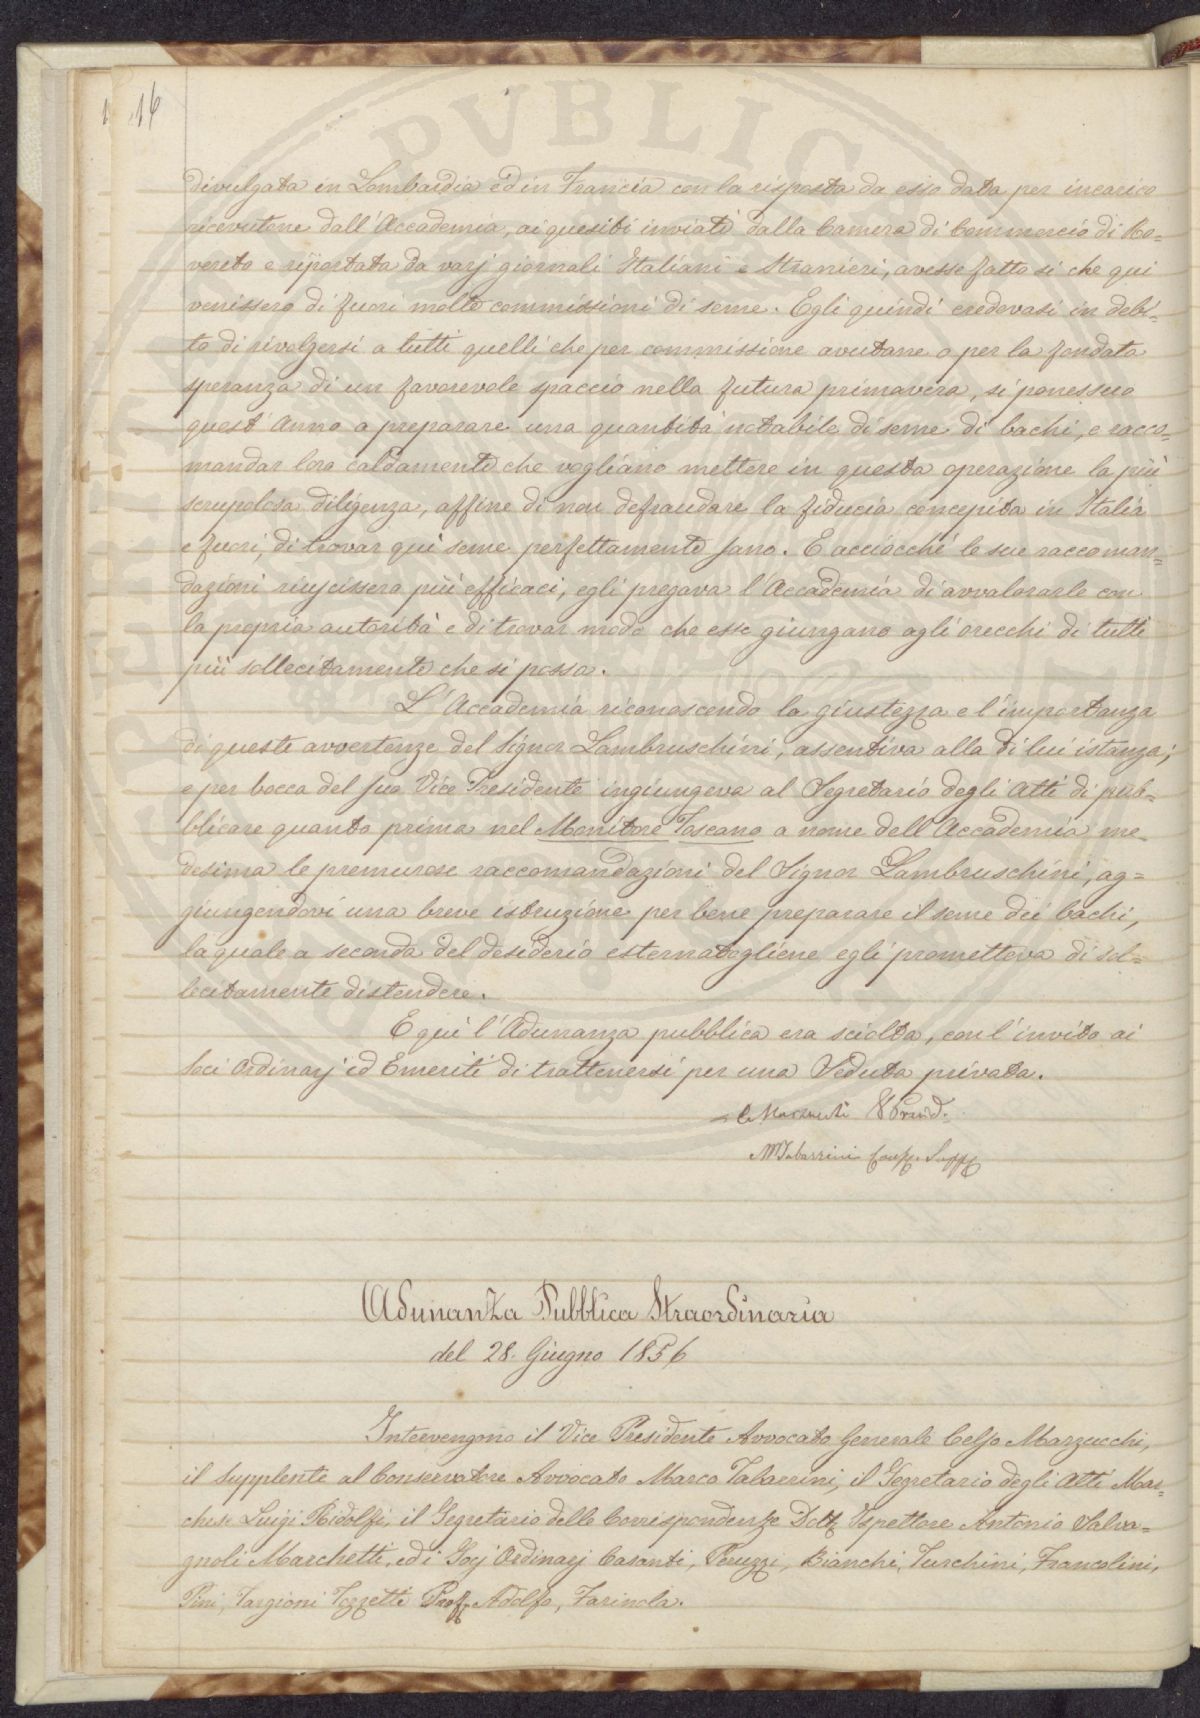 16
divulgata in Lombardia ed in Francia con la risposta da esso data per incarico
ricevutone dall'Accademia, ai quesiti inviati dalla Camera di Commercio di Ro=
vereto e riportata da varj giornali Italiani e Stranieri, avesse fatto sì che qui
venissero di fuori molte commissioni di seme. Egli quindi credevasi in debi=
to di rivolgersi a tutti quelli che per commissione avutane o per la fondata
speranza di un favorevole spaccio nella futura primavera, si ponessero
quest'Anno a preparare una quantità notabile di seme di bachi, e racco=
mandar loro caldamente che vogliano mettere in questa operazione la più
scrupolosa diligenza, affine di non defraudare la fiducia concepita in Italia
e fuori, di trovar quì seme perfettamente sano. E acciocché le sue raccoman=
dazioni riuscissero più efficaci, egli pregava l'Accademia di avvalorarle con
la propria autorità e di trovar modo che esse giungano agli orecchi di tutti
più sollecitamente che si possa.
L'Accademia riconoscendo la giustezza e l'importanza
di queste avvertenze del Signor Lambruschini, assentiva alla di lui istanza;
e per bocca del suo Vice Presidente ingiungeva al Segretario degli Atti di pub=
blicare quanto prima nel Monitore Toscano a nome dell'Accademia me=
desima le premurose raccomandazioni del Signor Lambruschini, ag=
giungendovi una breve istruzione per bene preparare il seme dei bachi,
la quale a seconda del desiderio esternatogliene egli prometteva di sol=
lecitamente distendere.
E quì l'Adunanza pubblica era sciolta, con l'invito ai
Soci Ordinarj ed Emeriti di trattenersi per una Seduta privata.
C Marzucchi V Presid.
M Tabarrini Cons. Supp
Adunanza Pubblica Straordinaria
del 28. Giugno 1856
Intervengono il Vice Presidente Avvocato Generale Celso Marzucchi,
il Supplente al Conservatore Avvocato Marco Tabarrini, il Segretario degli Atti Mar=
chese Luigi Ridolfi, il Segretario delle Corrispondenze Dott. Ispettore Antonio Salva=
gnoli Marchetti, ed i Socj Ordinarj Casanti, Peruzzi, Bianchi, Turchini, Francolini,
Pini, Targioni Tozzetti Prof. Adolfo, Farinola.
PVBLIC